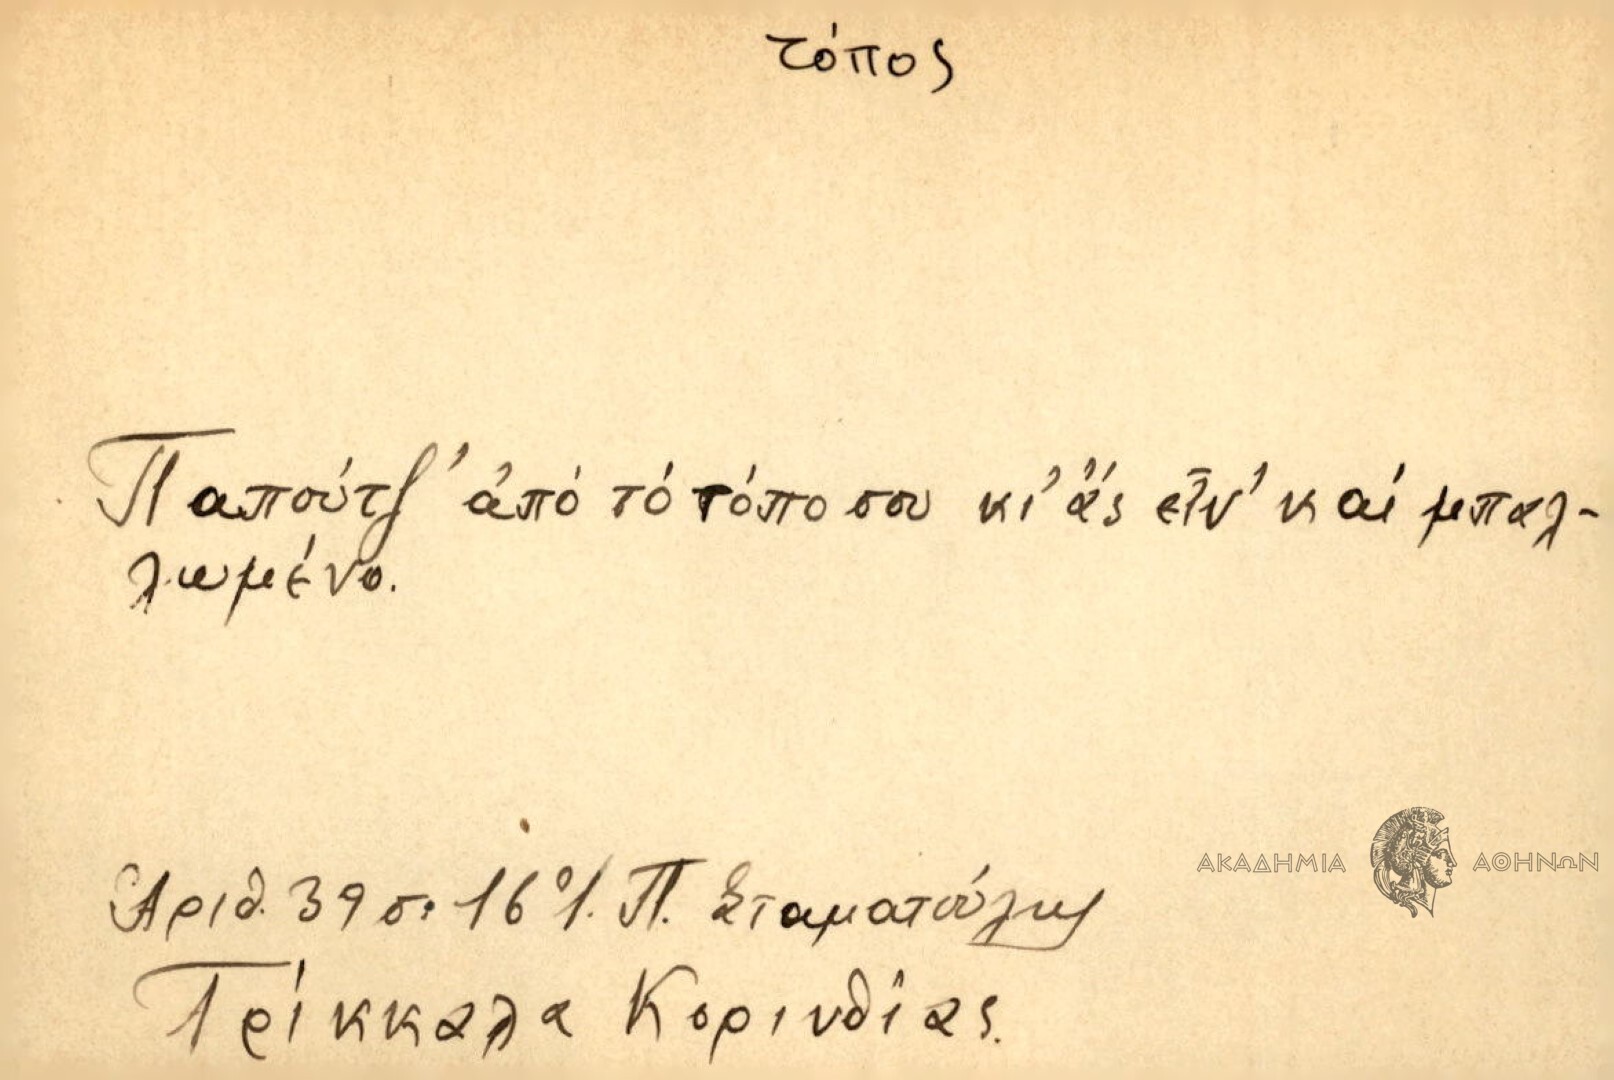 τόπος
Παπούτσ' ἀπό τό τόπο σου κι' ἄς εἶν' καί μπαλ-
λωμένο.
ΑΚΑΔΗΜΙΑ ΑΘΗΝΩΝ
Ἀριθ. 39 σ. 16 Ι. Π. Σταματούλης
Τρίκκαλα Κορινθίας.